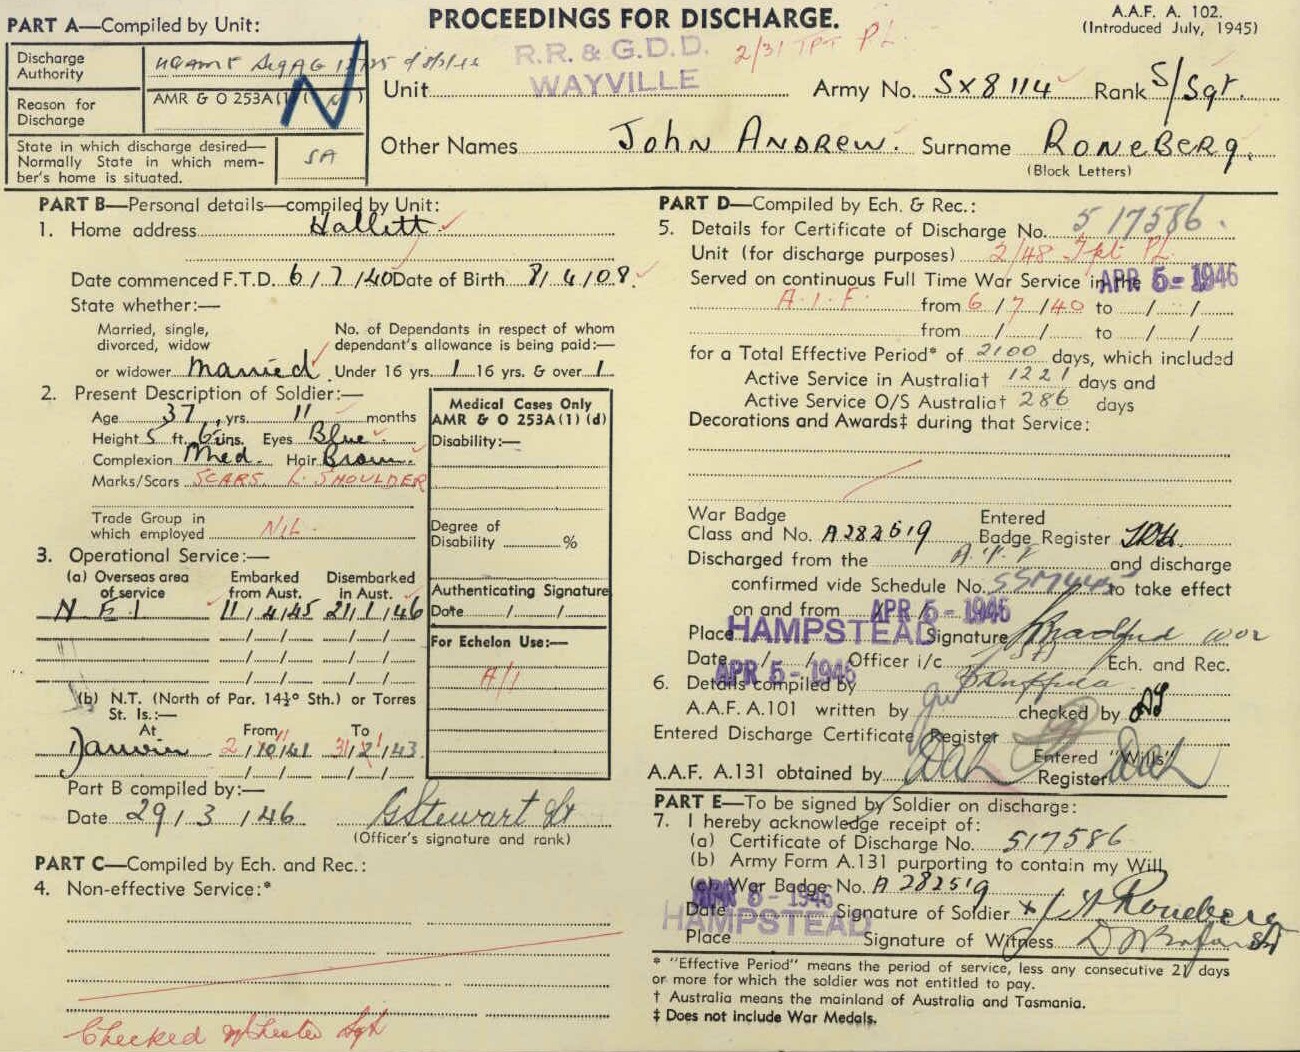 PART A—Compiled by Unit:
PROCEEDINGS FOR DISCHARGE.
A.A.F. A. 102.
(Introduced July, 1945)
Discharge Authority
Reason for Discharge AMR & O 253A(1) ( )
N
State in which discharge desired—
Normally State in which mem-
ber's home is situated.
SA
R.R. & G.D.D.
WAYVILLE
2/31 TPT PL.
Unit Army No. SX8114 Rank S/Sgt.
Other Names John Andrew. Surname Roneberg.
(Block Letters)
PART B—Personal details—compiled by Unit:
1. Home address Hallett
Date commenced F.T.D. 6/7/40 Date of Birth 8/4/08.
State whether:—
Married, single,
divorced, widow
or widower Married
No. of Dependants in respect of whom
dependant's allowance is being paid:—
Under 16 yrs. 1 16 yrs. & over 1
2. Present Description of Soldier:—
Age 37 yrs. 11 months
Height 5 ft. 6 ins. Eyes Blue
Complexion Med. Hair Brown.
Marks/Scars SCARS L. SHOULDER
Trade Group in
which employed NIL
Medical Cases Only
AMR & O 253A(1) (d)
Disability:—
Degree of
Disability %
Authenticating Signature
Date / /
For Echelon Use:—
A/1
3. Operational Service:—
(a) Overseas area of service
Embarked from Aust.
Disembarked in Aust.
N E I 11/4/45 21/1/46
/ / / /
/ / / /
/ / / /
(b) N.T. (North of Par. 14½° Sth.) or Torres
St. Is.:—
At From To
Darwin 2/10/41 31/2/43
/ / / /
Part B compiled by:—
Date 29/3/46 G Stewart Lt
(Officer's signature and rank)
PART C—Compiled by Ech. and Rec.:
4. Non-effective Service:*
Checked Sgt
PART D—Compiled by Ech. & Rec.:
5. Details for Certificate of Discharge No. 517586.
Unit (for discharge purposes) 2/48 Tpt PL.
Served on continuous Full Time War Service in the
APR 5 - 1946
A.I.F. from 6/7/40 to / /
from / / to / /
for a Total Effective Period* of 2100 days, which included
Active Service in Australia† 1221 days and
Active Service O/S Australia† 286 days
Decorations and Awards‡ during that Service:
War Badge
Class and No. A282519
Entered
Badge Register
Discharged from the A.I.F. and discharge
confirmed vide Schedule No. to take effect
on and from APR 5 - 1946
Place HAMPSTEAD Signature
Date APR 5 - 1946 Officer i/c SA Ech. and Rec.
6. Details compiled by
A.A.F. A.101 written by checked by
Entered Discharge Certificate Register
A.A.F. A.131 obtained by
Entered "Wills"
Register
PART E—To be signed by Soldier on discharge:
7. I hereby acknowledge receipt of:
(a) Certificate of Discharge No. 517586
(b) Army Form A.131 purporting to contain my Will
(c) War Badge No. A 282519
APR 5 - 1946
Date Signature of Soldier x J A Roneberg
HAMPSTEAD
Place Signature of Witness
* "Effective Period" means the period of service, less any consecutive 21 days
or more for which the soldier was not entitled to pay.
† Australia means the mainland of Australia and Tasmania.
‡ Does not include War Medals.